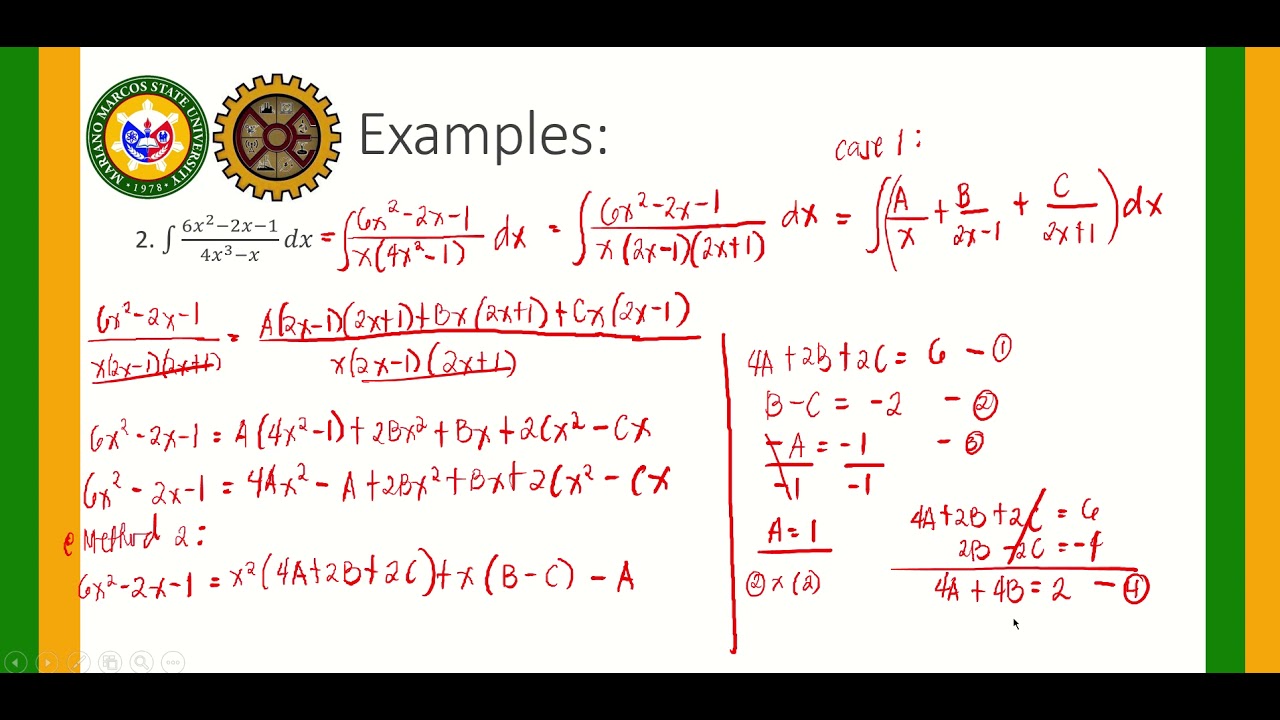 MARIANO MARCOS STATE UNIVERSITY
• 1978 •
Examples:
case 1:
2. ∫ 6x²−2x−1 / 4x³−x dx = ∫ 6x²−2x−1 / x(4x²−1) dx = ∫ 6x²−2x−1 / x(2x−1)(2x+1) dx = ∫ (A/x + B/2x−1 + C/2x+1) dx
6x²−2x−1 / x(2x−1)(2x+1) = A(2x−1)(2x+1)+Bx(2x+1)+Cx(2x−1) / x(2x−1)(2x+1)
6x²−2x−1 = A(4x²−1)+2Bx²+Bx+2Cx²−Cx
6x²−2x−1 = 4Ax²−A+2Bx²+Bx+2Cx²−Cx
e Method 2:
6x²−2x−1 = x²(4A+2B+2C)+x(B−C)−A
4A+2B+2C = 6 − ①
B−C = −2 − ②
−A = −1 − ③
−1 −1
A = 1
② x (2)
4A+2B+2C = 6
2B−2C = −4
4A+4B = 2 − ④